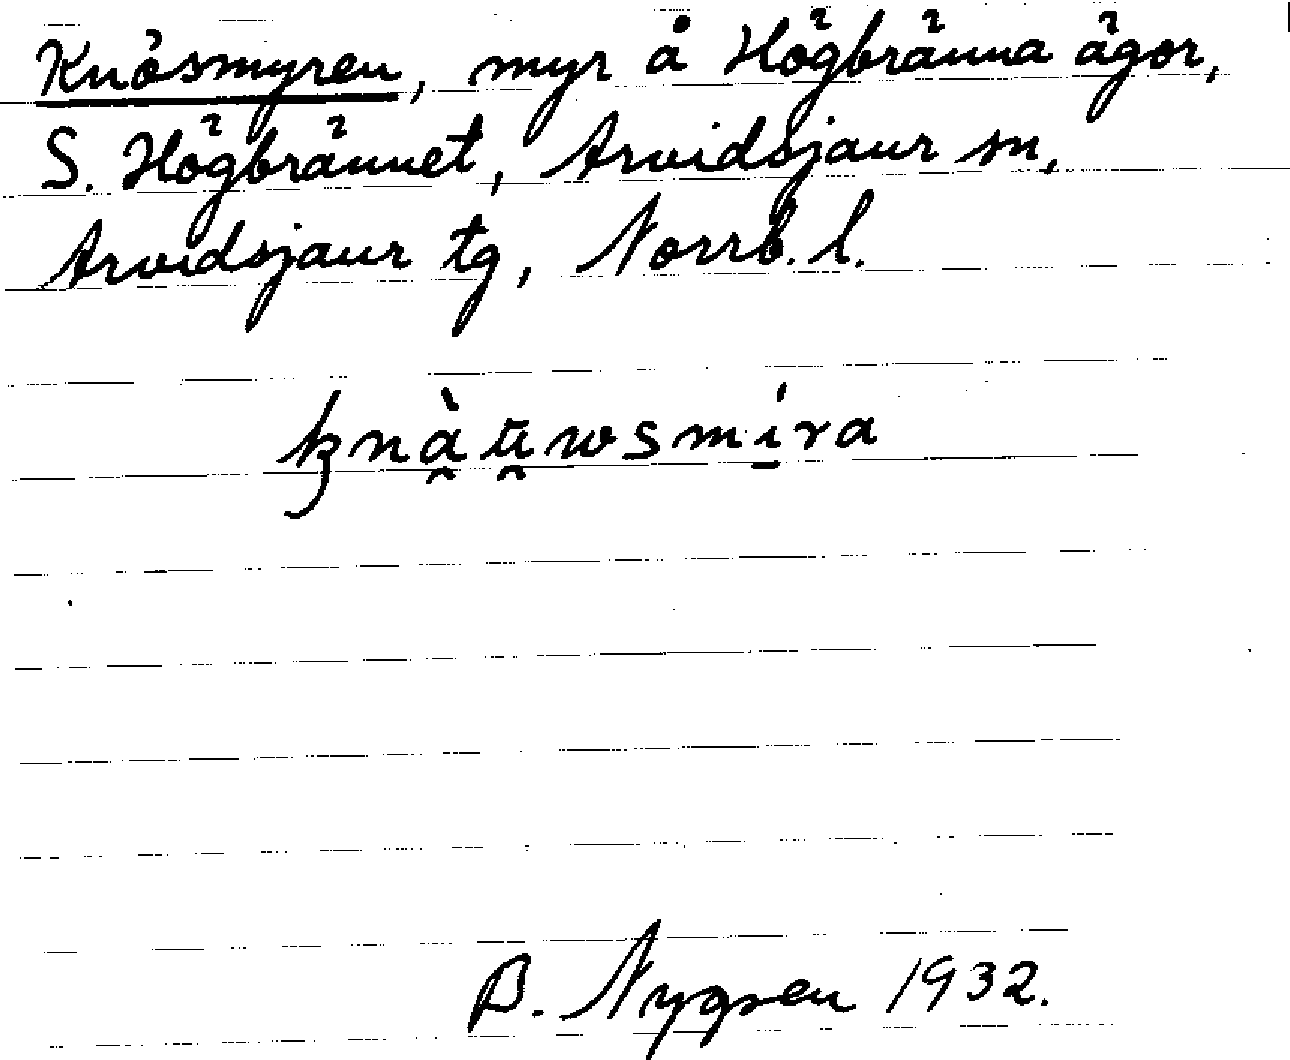 Knösmyren, myr å Högbränna ägor,
S. Högbrännet, Arvidsjaur sn,
Arvidsjaur tg, Norrb. l.
B. Nygren 1932.